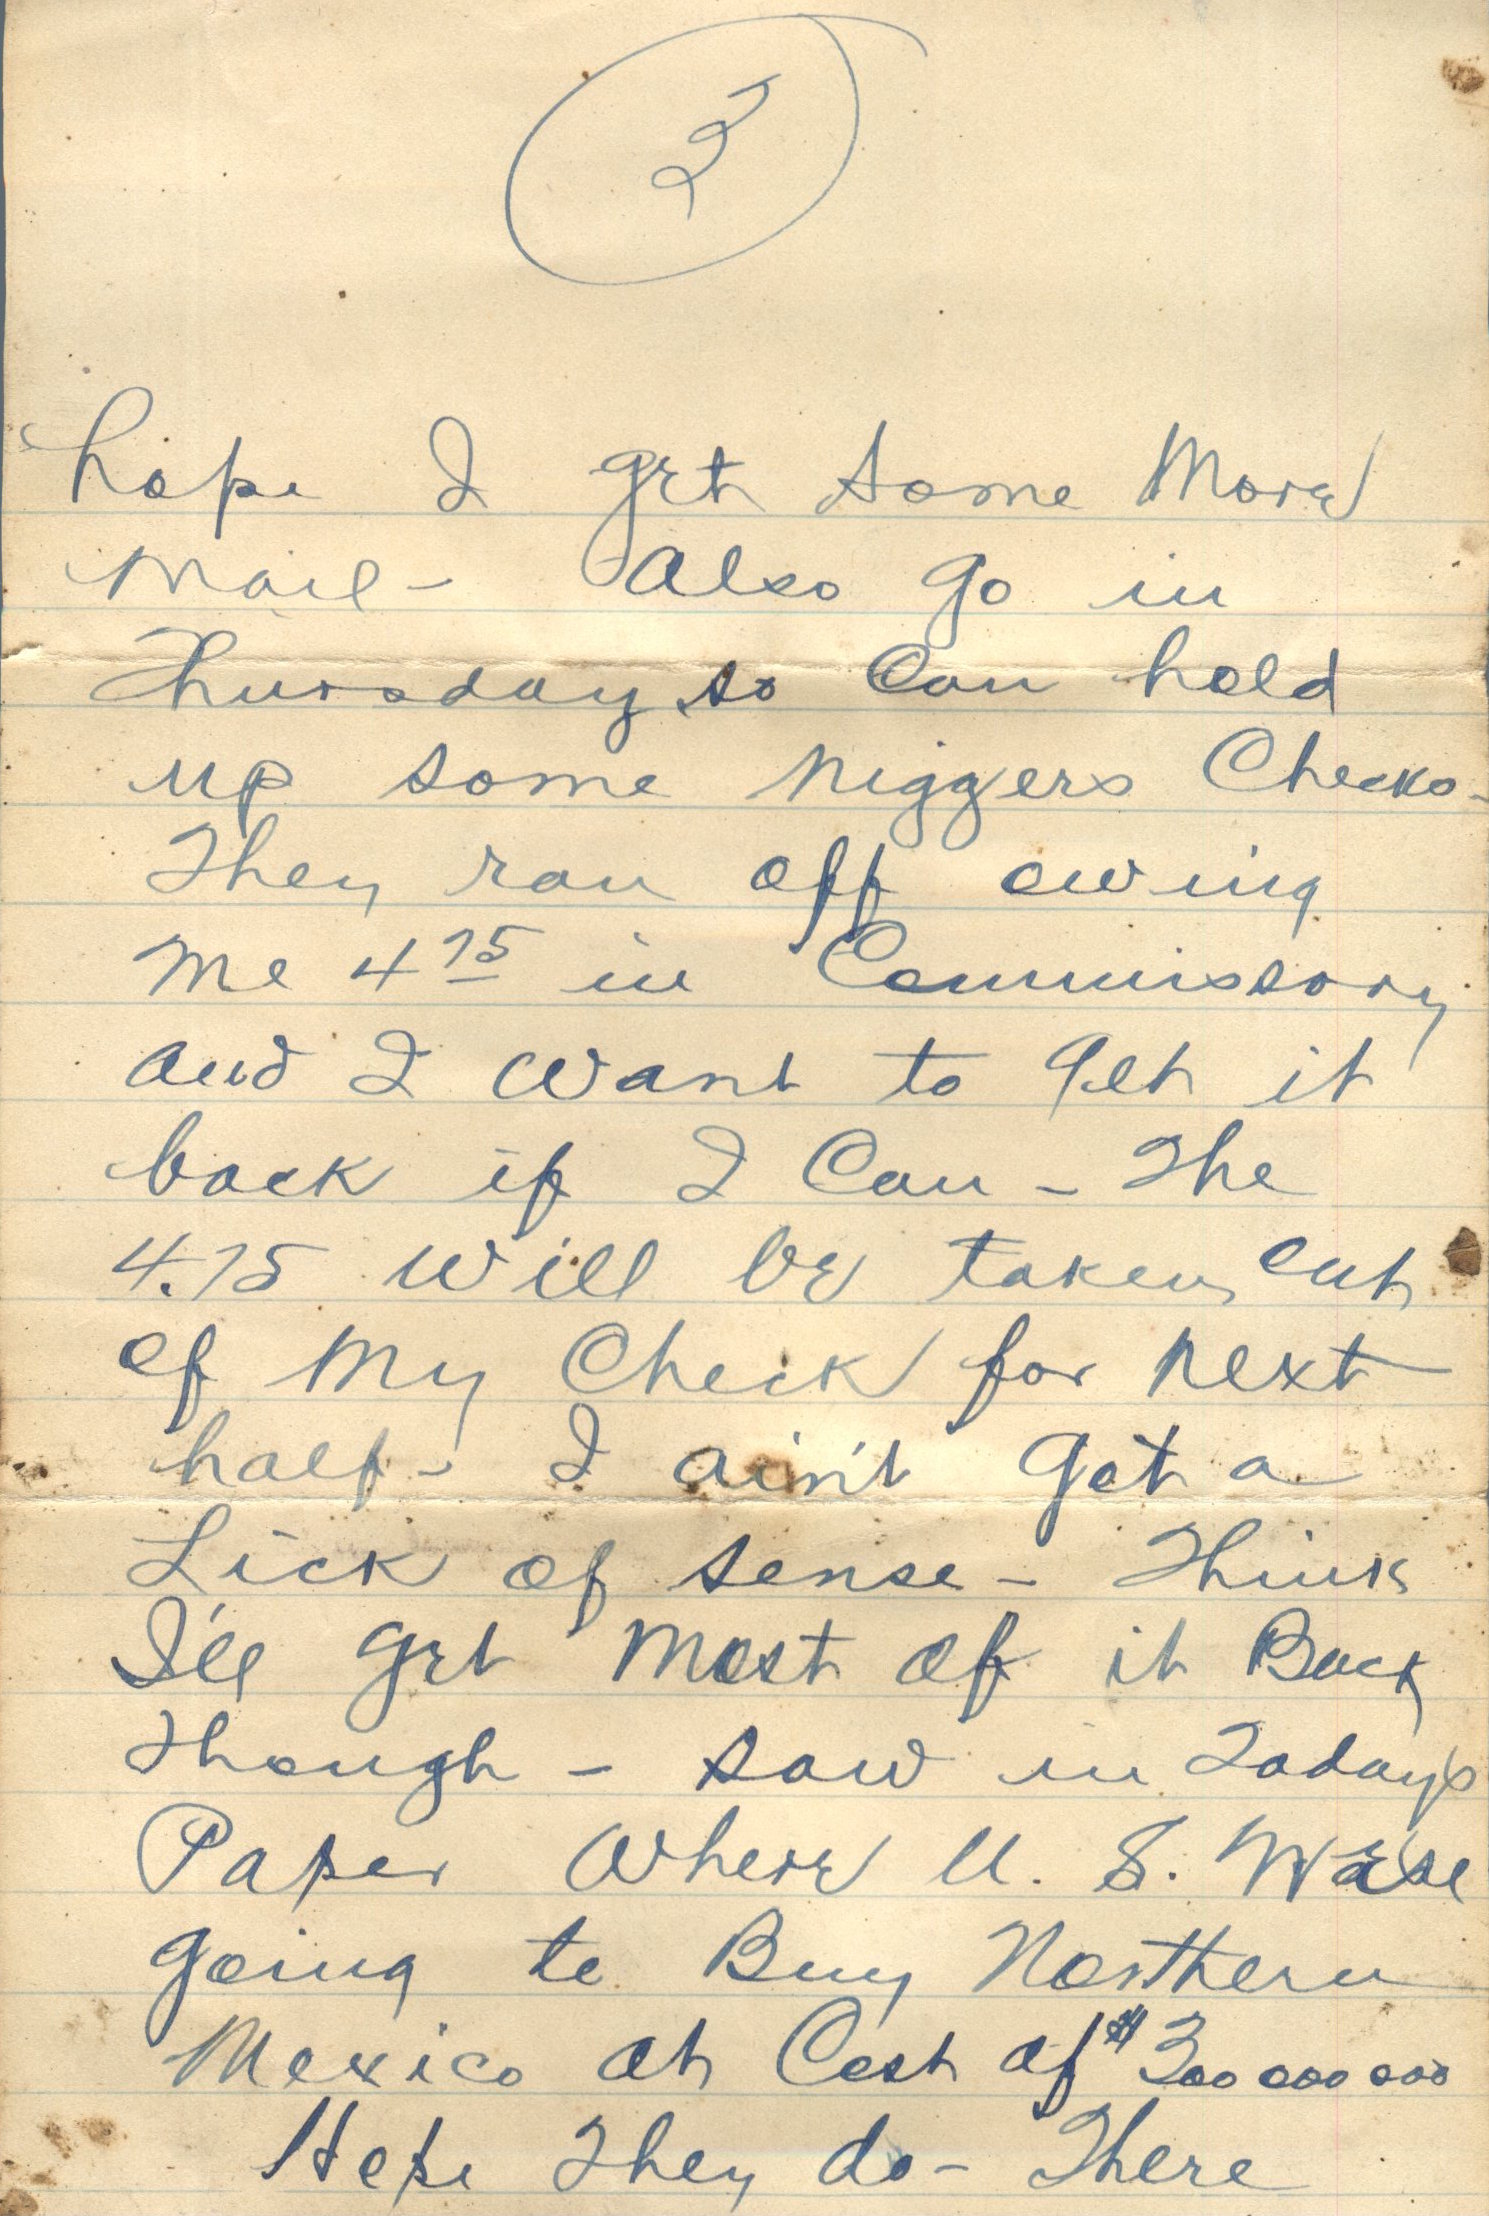 3
hope I get some More
Mail - Also go in
Thursday so Can hold
up some niggers Checks -
They ran off owing
Me 4 75 in Commissory
and I want to get it
back if I Can - The
4.75 will be taken out
of My Check for next
half - I ain't got a
Lick of sense - Think
I'll get Most of it Back
Though - saw in Todays
Paper Where U. S.
going to Buy Northern
Mexico at Cost of $300 000 000
Hope They do - There